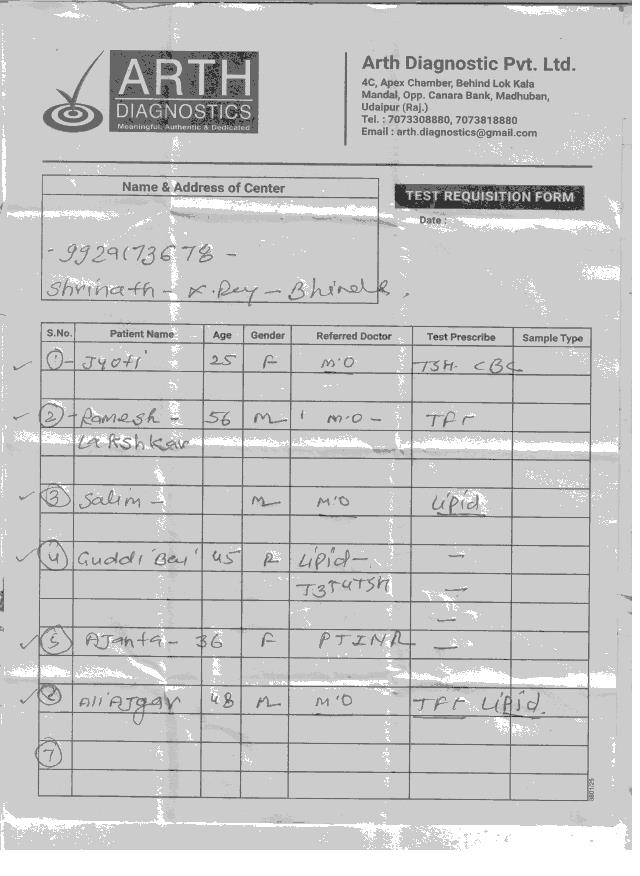 ARTH
DIAGNOSTICS
Meaningful, Authentic & Dedicated
Arth Diagnostic Pvt. Ltd.
4C, Apex Chamber, Behind Lok Kala
Mandal, Opp. Canara Bank, Madhuban,
Udaipur (Raj.)
Tel. : 7073308880, 7073818880
Email : arth.diagnostics@gmail.com
Name & Address of Center
TEST REQUISITION FORM
Date :
- 9929173678 -
Shrinath - X.Rey - Bhinder
S.No. Patient Name Age Gender Referred Doctor Test Prescribe Sample Type
1 - Jyoti 25 F M'O TSH. CBC
2 - Ramesh - 56 M M.O - TFT
Lakshkar
3 Salim - M M'O Lipid
4 Guddi Bai 45 Lipid - -
T3T4TSH -
-
5 AJanta - 36 F PTINR -
6 Ali AJgar 48 M M'O TFT Lipid.
7